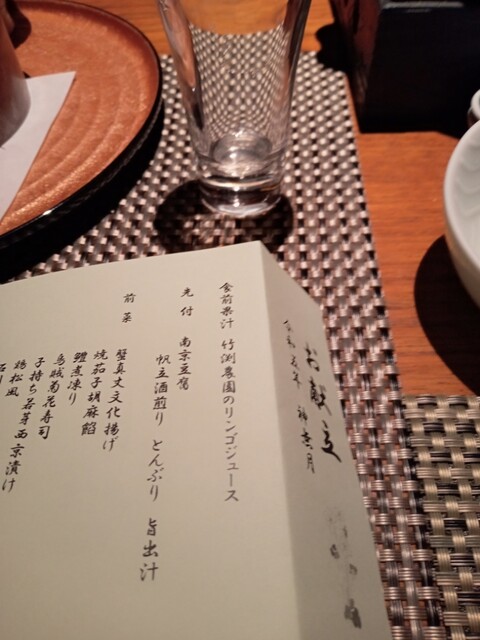 お献立
神無月
食前果汁 竹渕農園のリンゴジュース
先付 南京豆腐
帆立酒煎り とんぶり 旨出汁
前菜
蟹真丈文化揚げ
焼茄子胡麻餡
鱧煮凍り
烏賊菊花寿司
子持ち若芽西京漬け
松風